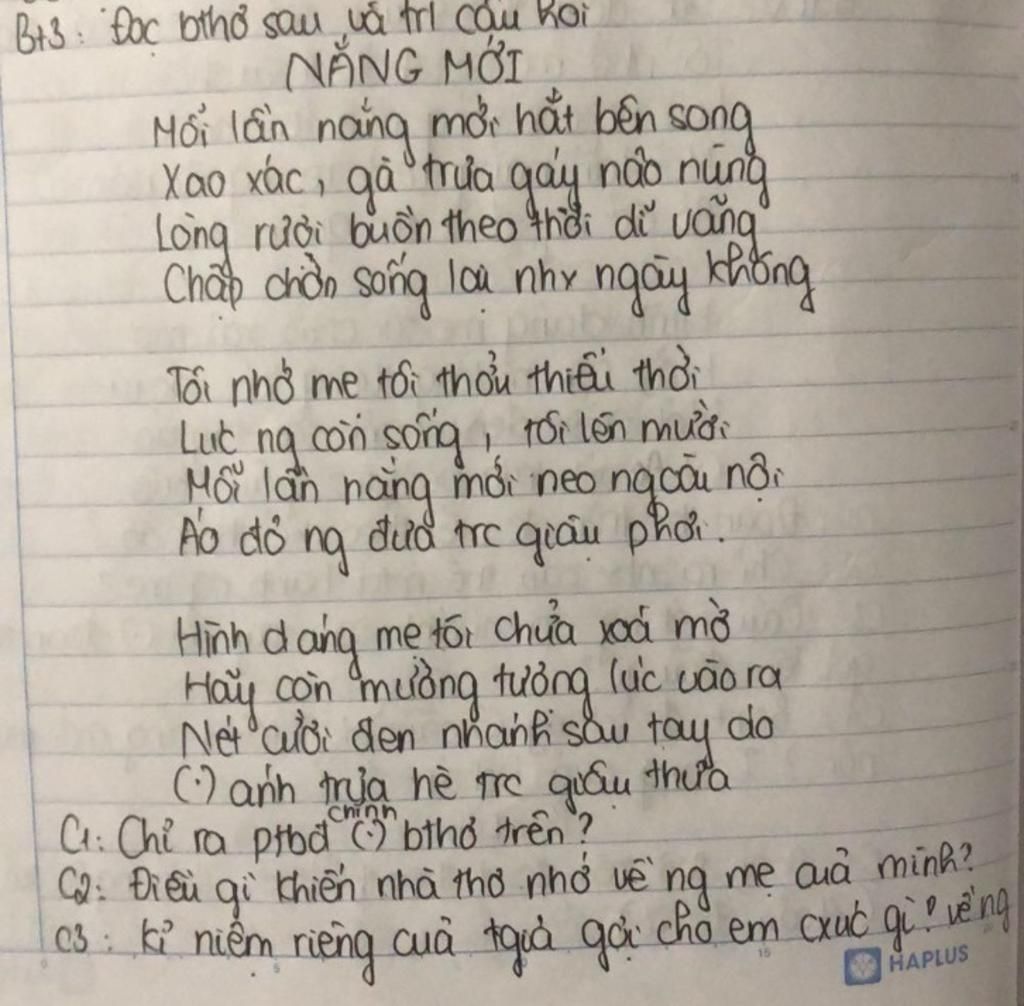 Bt3: Đọc bthơ sau và trl câu hỏi
NẮNG MỚI
Mỗi lần nắng mới hắt bên song
Xao xác, gà trưa gáy não nùng
Lòng rười buồn theo thời dĩ vãng
Chập chờn sống lại nhx ngày không
Tôi nhớ mẹ tôi thưở thiếu thời
Lúc ng còn sống, tôi lên mười
Mỗi lần nắng mới neo ngoài nội
Áo đỏ ng đưa trc giậu phơi.
Hình dáng mẹ tôi chửa xoá mờ
Hãy còn mường tượng lúc vào ra
Nét cười đen nhánh sau tay áo
(.) ánh trưa hè trc giậu thưa
C1: Chỉ ra ptbđ chính (.) bthơ trên?
C2: Điều gì khiến nhà thơ nhớ về ng mẹ của mình?
C3: Kỉ niệm riêng của tgiả gợi cho em cxúc gì? về ng
HAPLUS